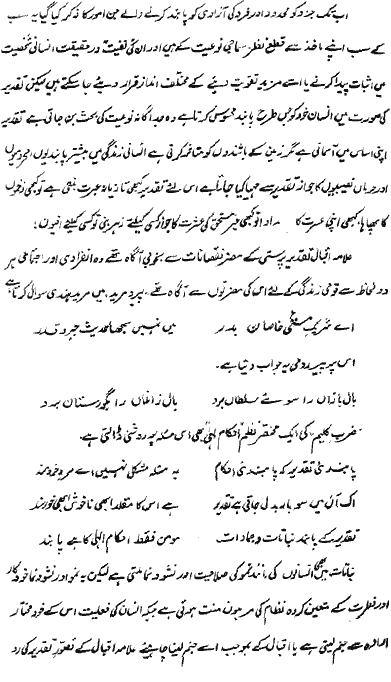 اب تک جذبہ کو محدود اور فرد کی آزادی کو پابند کرنے والے جن امور کا ذکر کیا گیا یہ سب
کے سب اپنے ماخذ سے قطع نظر سماجی نوعیت کے ہیں اور ان کی نفی در حقیقت انسانی شخصیت
میں اثبات پیدا کرنے یا اسے مزید تقویت دینے کے مختلف انداز قرار دیئے جا سکتے ہیں لیکن تقدیر
کی صورت میں انسان خود کو جس طرح پابند محسوس کرتا ہے وہ جداگانہ نوعیت کی بحث بن جاتی ہے تقدیر
اپنی اساس میں آسمانی ہے مگر زمین کے باشندوں کو متاثر کرتی ہے انسانی زندگی میں بیشتر پابندیوں، محرومیوں
اور حرماں نصیبیوں کا جواز تقدیر سے مہیا کیا جاتا ہے اس لئے تقدیر کبھی تازیانہ عبرت بنتی ہے تو کبھی زخموں
کا پھاہا، کبھی اپنی عسرت کا مداوا تو کبھی غیر مستحق کی عشرت کا جواز کسی کیلئے زہر بنتی تو کسی کیلئے افیون؛
علامہ اقبال تقدیر پرستی کے مضر نقصانات سے بخوبی آگاہ تھے وہ انفرادی اور اجتماعی ہر
دو لحاظ سے قومی زندگی کے لئے اس کی مضرتوں سے آگاہ تھے۔ پیر و مرید میں مرید ہندی سوال کرتا ہے
اے شریک مستیٔ خاصان بدر میں نہیں سمجھا حدیث جبر و قدر
اس پر پیر رومی یہ جواب دیتا ہے۔
بال بازاں را سوئے سلطاں برد بال زاغاں را بگورستان برد
ضرب کلیم کی ایک مختصر نظم "احکام الٰہی" بھی اس مسئلہ پہ روشنی ڈالتی ہے۔
پابندیٔ تقدیر کہ پابندیٔ احکام یہ مسئلہ مشکل نہیں اے مرد خردمند
اک آن میں سو بار بدل جاتی ہے تقدیر ہے اس کا مقلد ابھی ناخوش ابھی خورسند
تقدیر کے پابند نباتات و جمادات مومن فقط احکام الٰہی کا ہے پابند
نباتات بھی انسانوں کی مانند نمو کی صلاحیت اور نشو و نما ملتی ہے لیکن یہ نمو اور نشو و نما خود کار
اور فطرت کے متعین کردہ نظام کی مرہون منت ہوتی ہے جبکہ انسان کی فعلیت اس کے خود مختار
ارادہ سے جنم لیتی ہے یا اقبال کے بموجب اسے جنم لینا چاہیئے علامہ اقبال کے تصور تقدیر کی رو